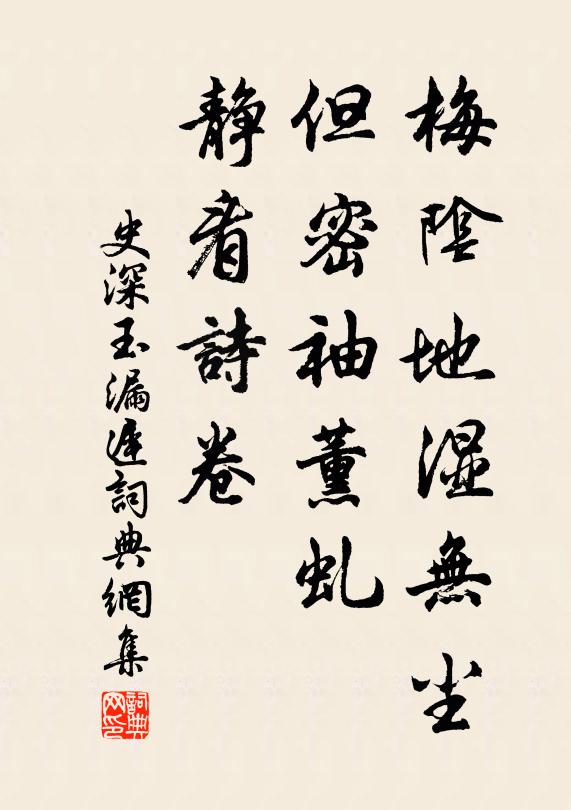 梅陰地湿無尘
但密袖薰虬
静看詩卷
史深玉漏遲詞典網集
詞典网印